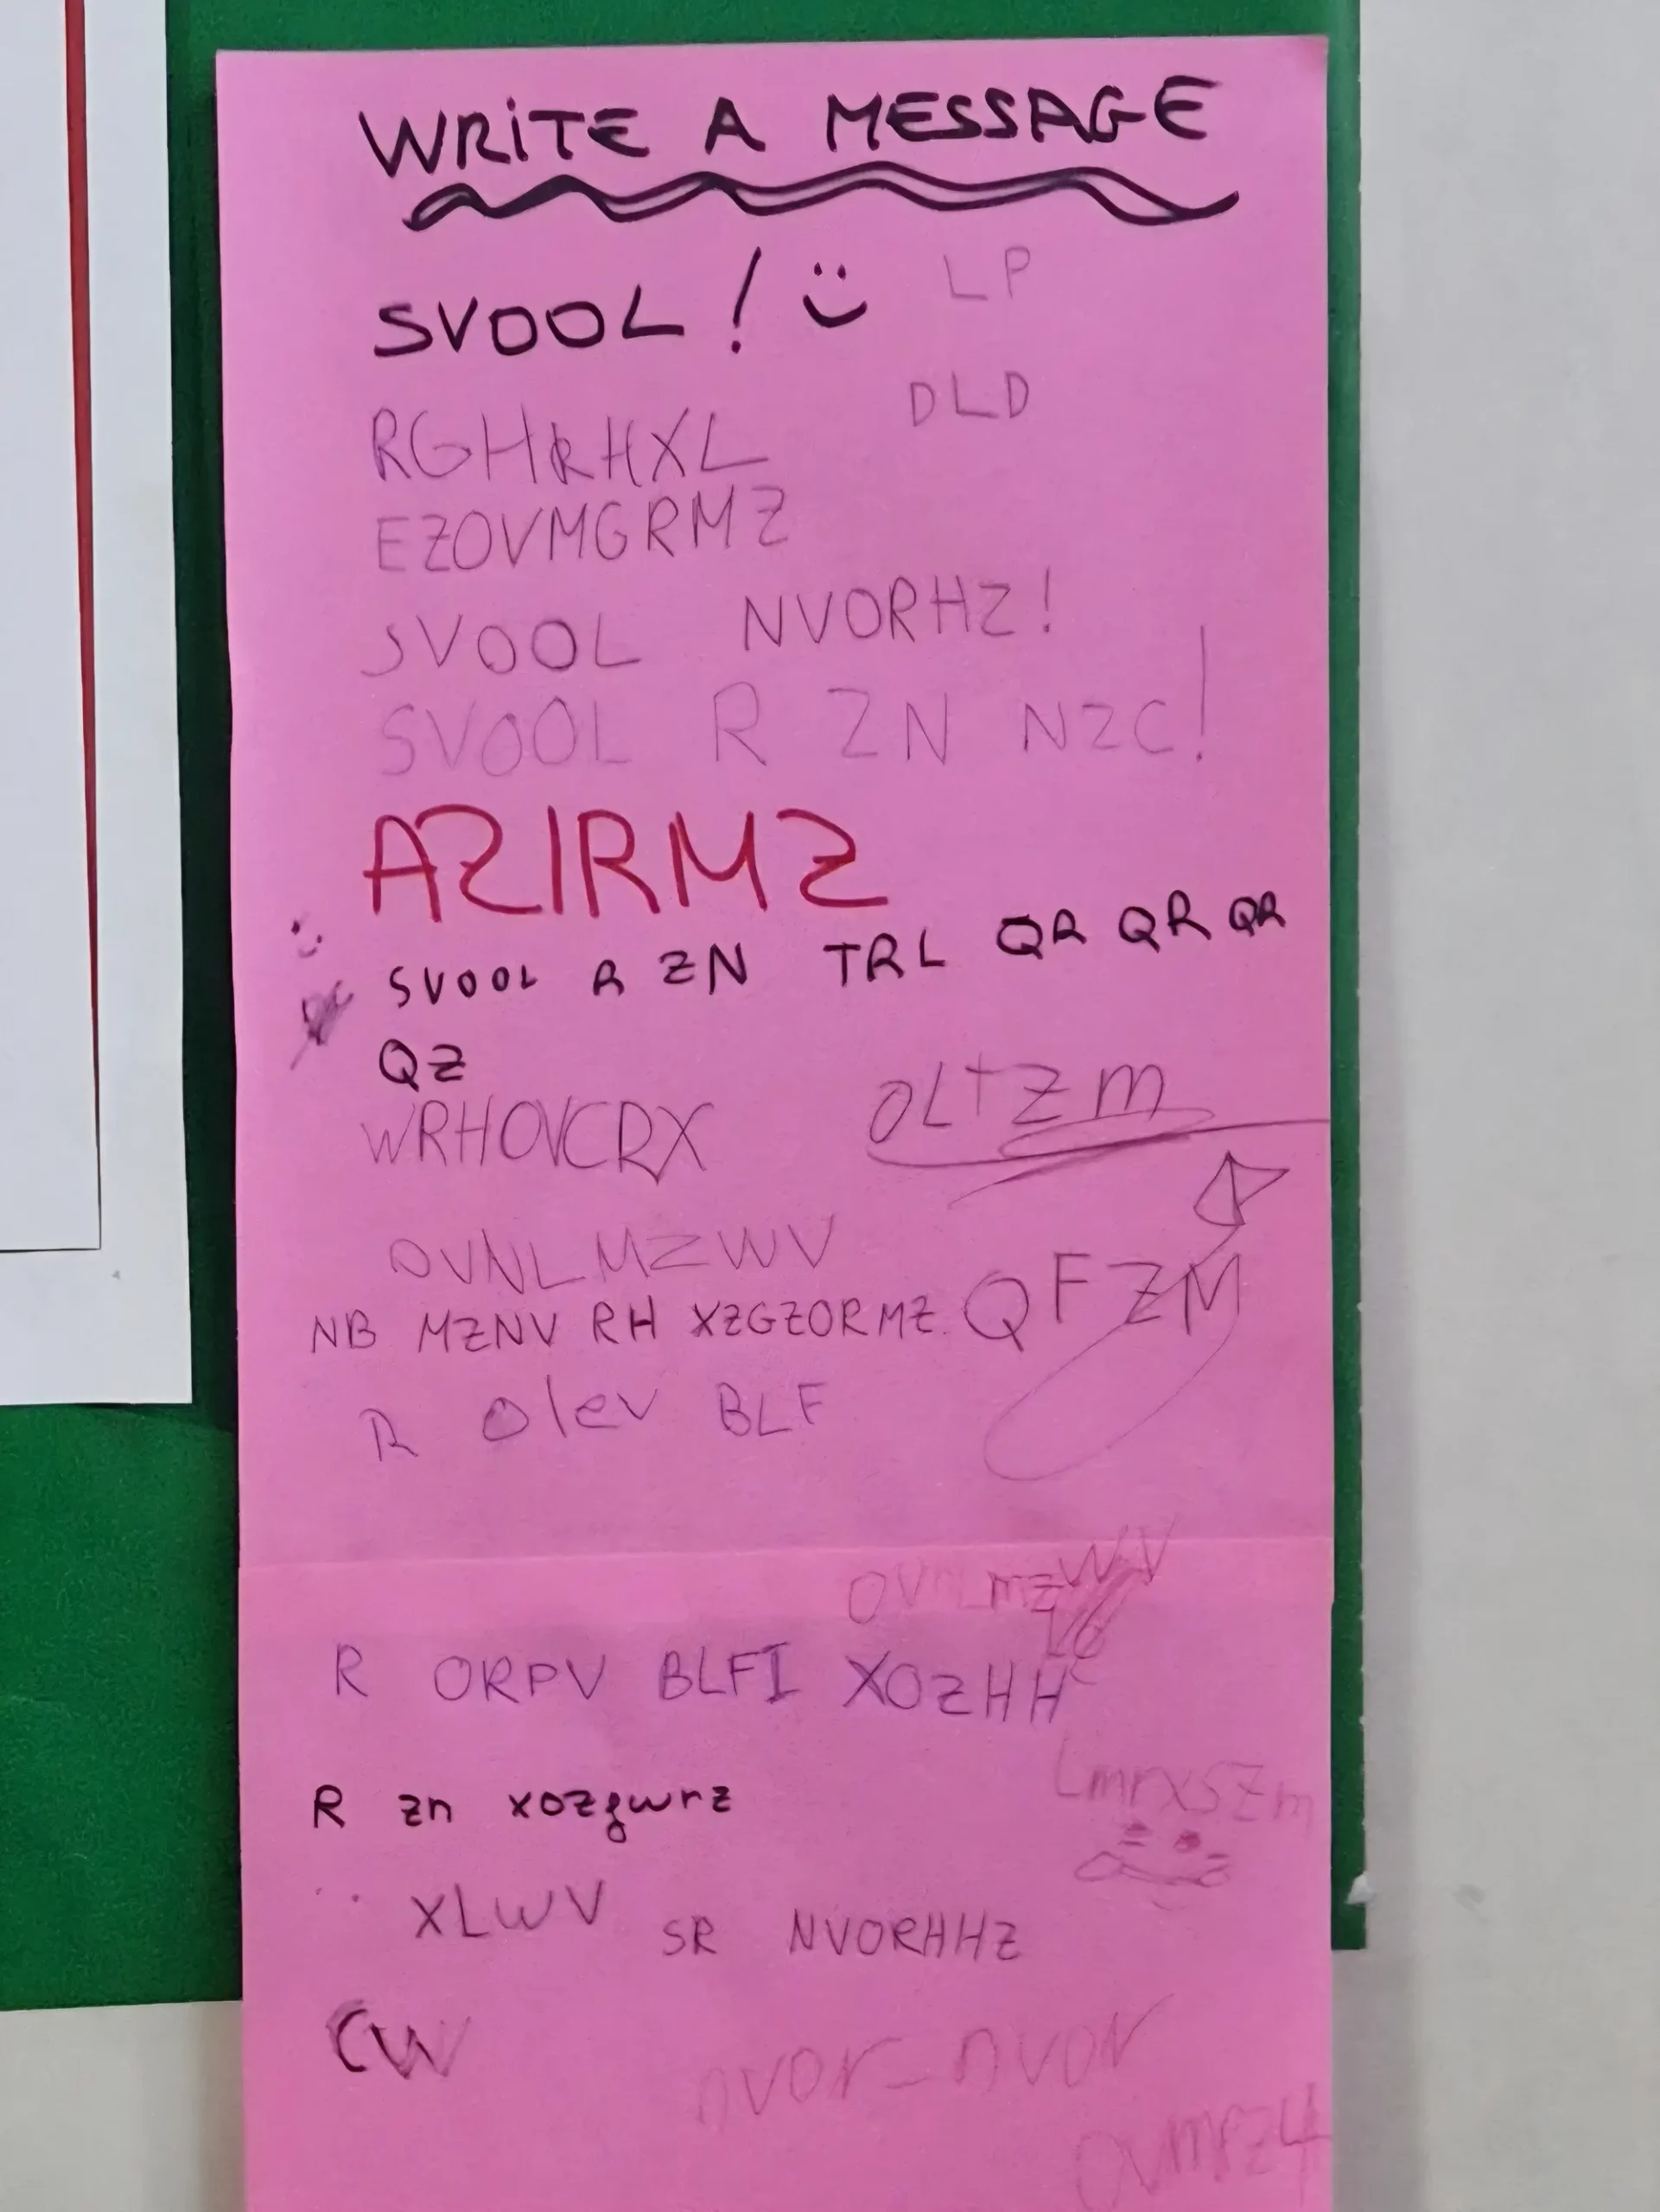 WRITE A MESSAGE
SVOOL! LP
DLD
RGHRHXL
EZOVMGRMZ
SVOOL NVORHZ!
SVOOL R ZN NZC!
AZIRMZ
SVOOL R ZN TRL QR QR QR
QZ
WRHOVCRX
OLTZM
OVNLMZWV
QFZM
NB MZNV RH XZGZORMZ.
R Olev BLF
R ORPV BLFI XOZHH
R zn xozgwrz
LmrxSZm
XLWV SR NVORHHZ
CW
nvor-nvor